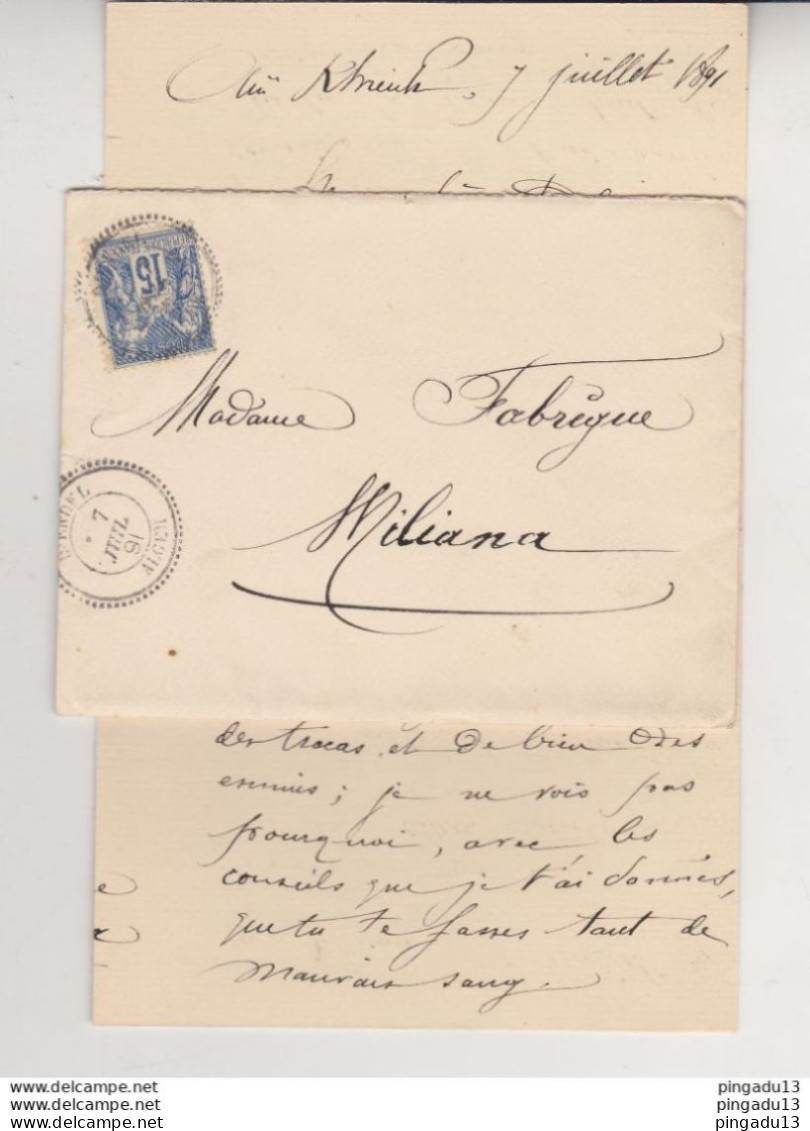 7 juillet 1891
15
Madame Fabrègue
Miliana
7
JUIL
91
ALGER
des tracas et de bien des
ennuis ; je ne vois pas
pourquoi, avec les
conseils que je t'ai donnés,
que tu te fasses tant de
mauvais sang.
www.delcampe.net
www.delcampe.net
www.delcampe.net
pingadu13
pingadu_13
pingadu13